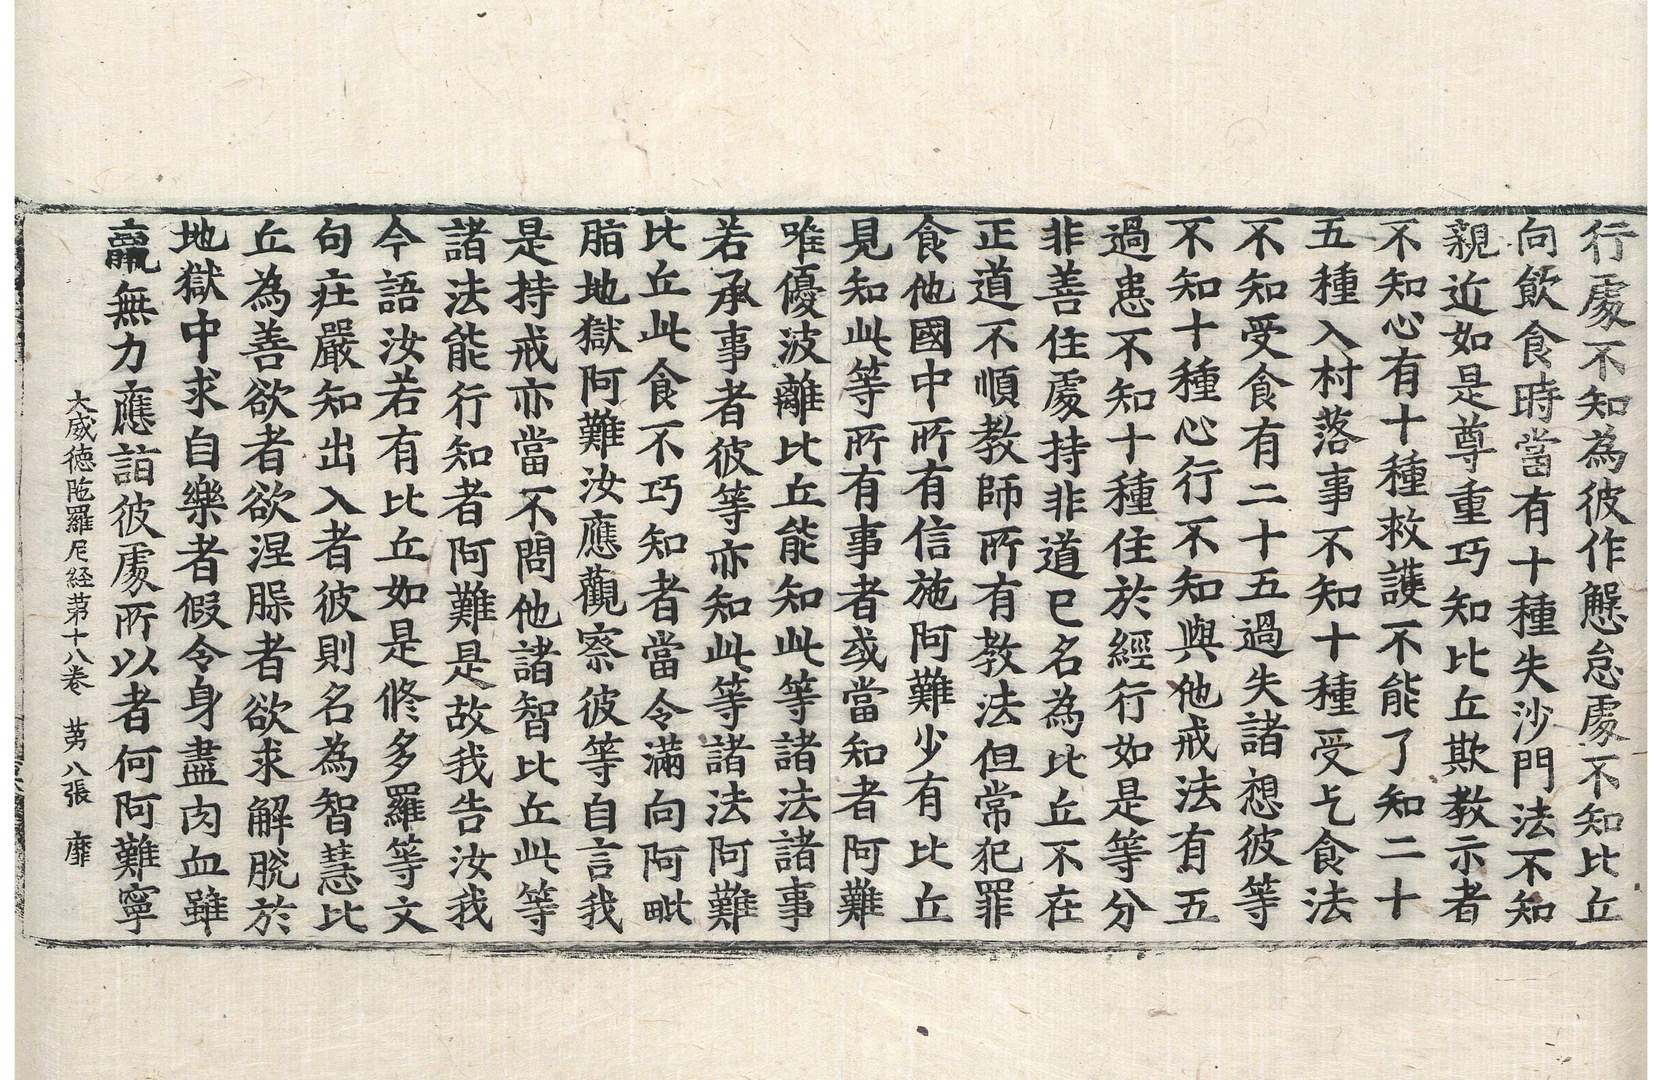 行處不知為彼作懈怠處不知比丘
向飲食時當有十種失沙門法不知
親近如是尊重巧知比丘欺教示者
不知心有十種救護不能了知二十
五種入村落事不知十種受乞食法
不知受食有二十五過失諸想彼等
不知十種心行不知與他戒法有五
過患不知十種住於經行如是等分
非善住處持非道已名為比丘不在
正道不順教師所有教法但常犯罪
食他國中所有信施阿難少有比丘
見知此等所有事者或當知者阿難
唯優波離比丘能知此等諸法諸事
若承事者彼等亦知此等諸法阿難
比丘此食不巧知者當令滿向阿毗
脂地獄阿難汝應觀察彼等自言我
是持戒亦當不問他諸智比丘此等
諸法能行知者阿難是故我告汝我
今語汝若有比丘如是修多羅等文
句庄嚴知出入者彼則名為智慧比
丘為善欲者欲涅槃者欲求解脫於
地獄中求自樂者假令身盡肉血雖
羸無力應詣彼處所以者何阿難寧
大威德陁羅尼経苐十八卷 苐八張 靡